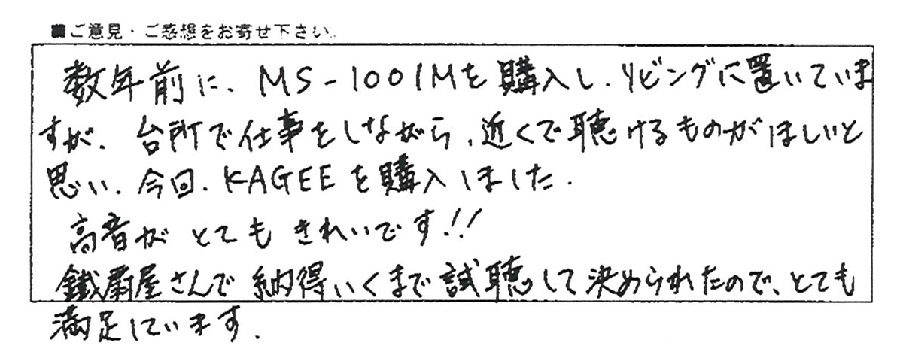 ■ご意見・ご感想をお寄せ下さい。
数年前に、MS-1001Mを購入し、リビングに置いていま
すが、台所で仕事をしながら、近くで聴けるものがほしいと
思い、今回、KAGEEを購入しました。
高音がとてもきれいです!!
鐵扇屋さんで納得いくまで試聴して決められたので、とても
満足しています。